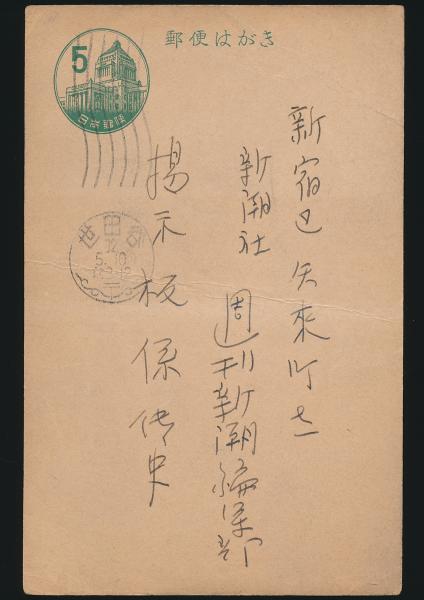 郵便はがき
5
日本郵便
新宿区矢來町七一
新潮社
週刊新潮編集部
掲示板係
世田谷